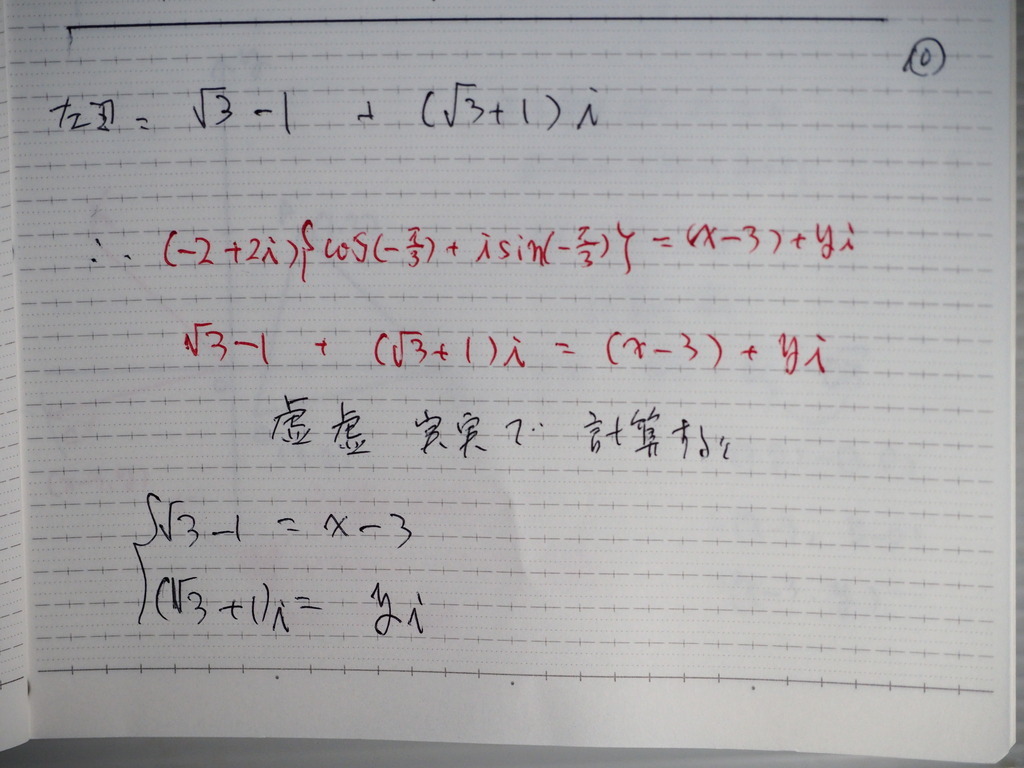 ⑩
左辺 = √3 - 1 + (√3 + 1) i
∴ (-2 + 2i){cos(-π/3) + i sin(-π/3)} = (x - 3) + yi
√3 - 1 + (√3 + 1) i = (x - 3) + yi
虚虚 実実で 計算すると
{ √3 - 1 = x - 3
(√3 + 1) i = yi